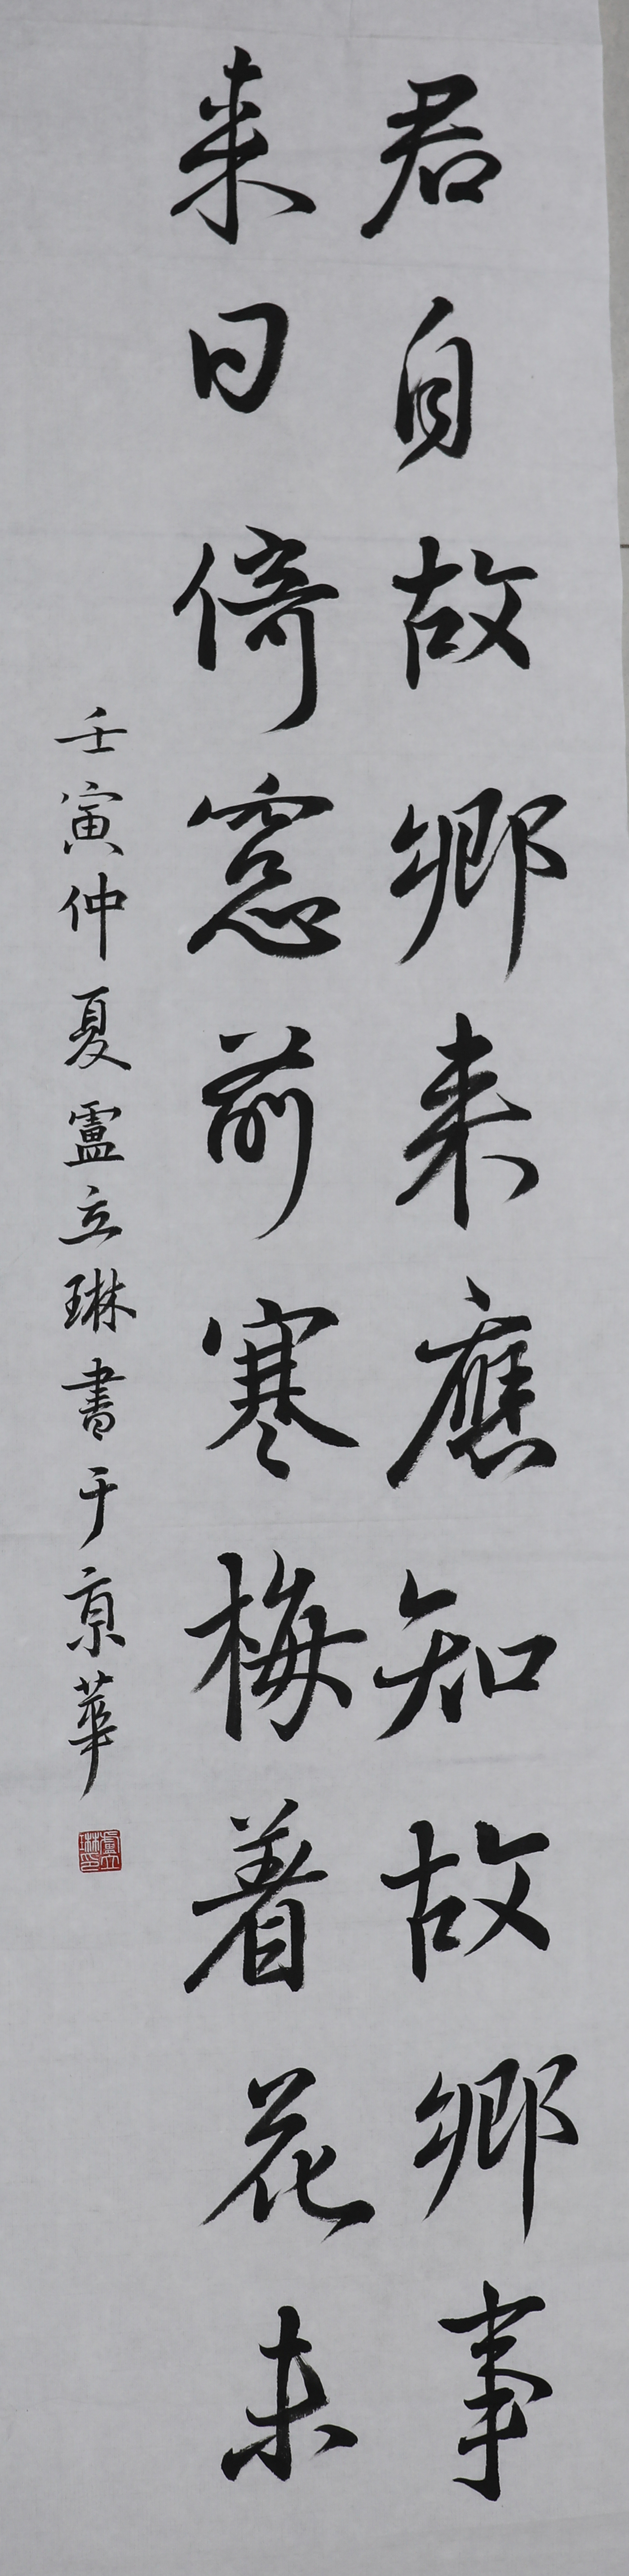 君自故鄉来應知故鄉事
来日倚窓前寒梅着花未
壬寅仲夏盧立琳書于京華
盧立琳印